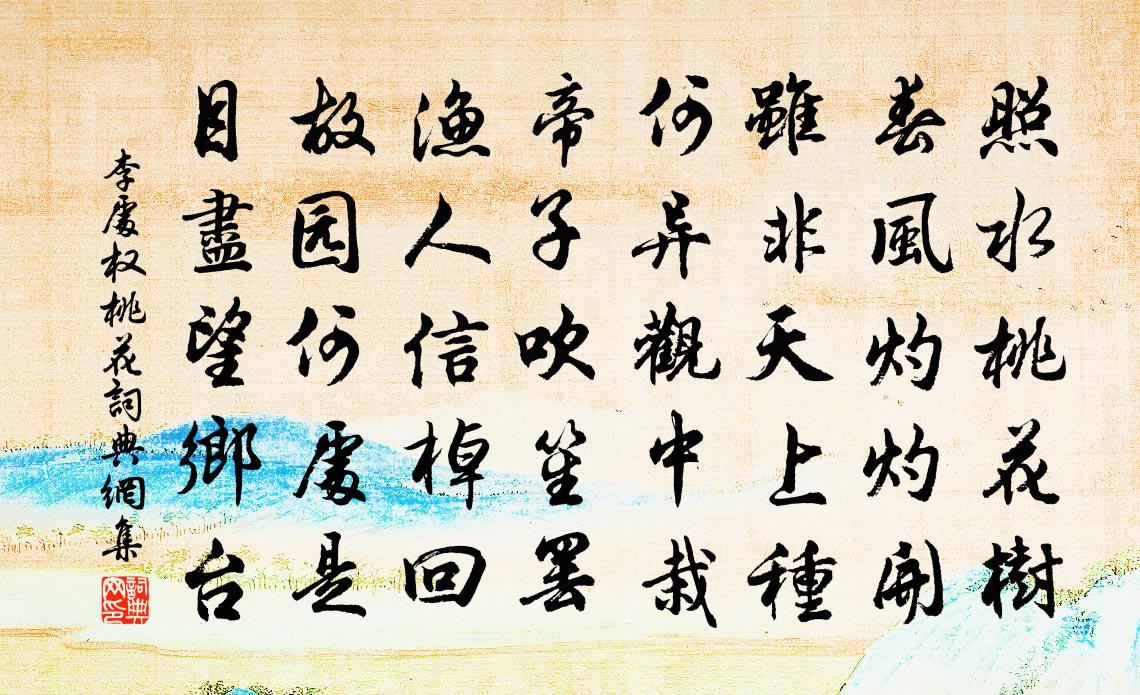 照水桃花樹
春風灼灼開
雖非天上種
何异觀中栽
帝子吹笙罢
漁人信棹回
故园何處是
目盡望鄉台
李處权桃花詞典網集
詞典网印